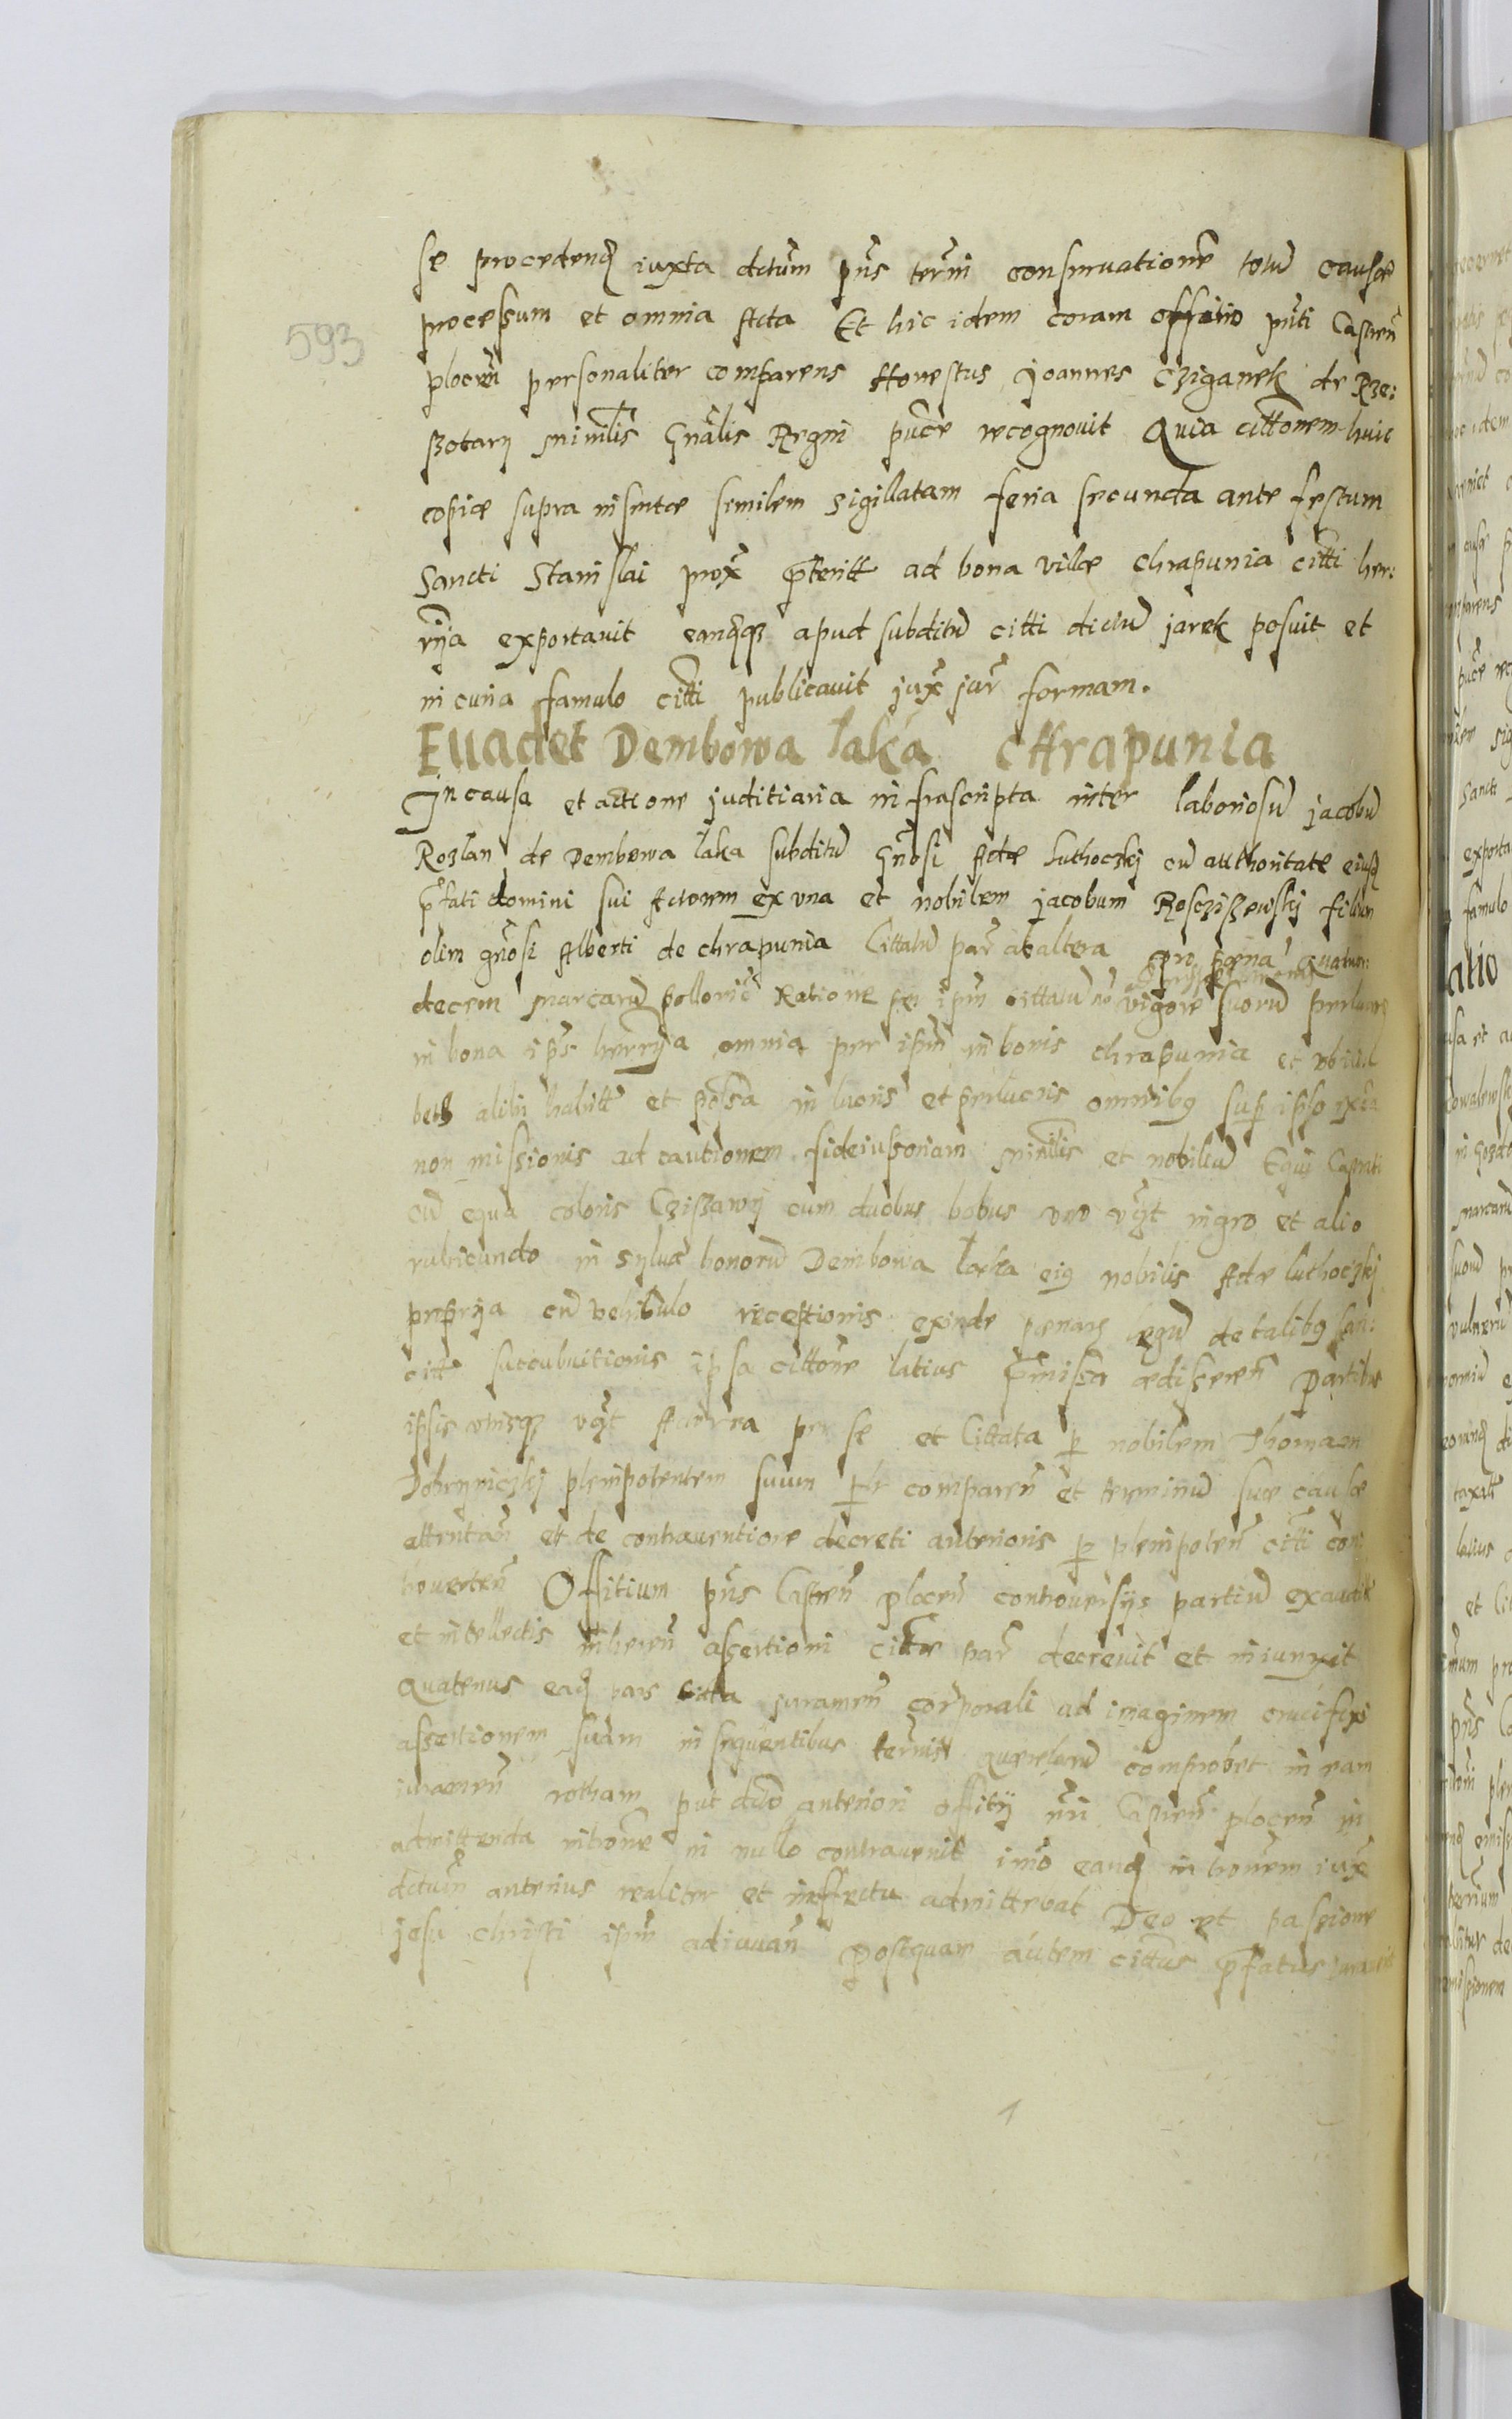 593
se procedend iuxta dctum pns termi conservatione totu causae
processum et omnia Acta Et hic idem coram offitio pnti Castren
plocen personaliter comparens Honestus Joannes Cziganek de Rze:
szotary Minrlis Gnalis Regni puce recognovit Quia cittonem huic
copiae supra insertae similem sigillatam feria secunda ante festum
Sancti Stanislai prox pterit ad bona villae Chrapunia citti her:
rija exportavit eandqz apud subditu citti dictu jarek posuit et
in curia famulo citti publicavit jux jur formam.
Evadet Dembowa laka Chrapunia
In causa et actione juditiaria infrascripta inter laboriosu jacobu
Rozlan de Dembowa laka subditu Gnosi Adae Luthoczkj cu authoritate eiusd
pfati domini sui Actorem ex una et nobilem jacobum Roscziszewskj filium
olim gnosi Alberti de Chrapunia Cittatu par ab altera pro paena quatuor
decem marcaru pollonic Ratione per ipm cittatu no vigore suoru
in bona ips herrija omnia per ipm in bonis Chrapunia et
alibi habitt et possa in lucris et perlucris omnibq sup ipso
non missionis ad cautionem fideiussoriam Minrlis et nobiliu Equi
cu equa coloris Cziszawij cum duobus bobus uno vzt nigro et alio
rubicundo in sylva bonoru Dembowa laka eiq nobilis Adae luthoczkj
proprija cu vehiculo receptionis exinde paenarq legu de talibq san:
citt succubuitionis ipsa cittone latius pmissa aedisseren Partibus
ipsis utrisqz vzt Actorea per se et Cittata p nobilem Thomam
Dobrzyniczkj plenipotentem suum plr comparen et terminu suae causae
attentan et de contraventione decreti anterioris p plenipoten citti con:
troverten Offitium pns Castren plocen controversijs partiu exauditt
et intellectis inheren assertioni cittae par decrevit et iniunxit
Quatenus ead pars citta juramen corporali ad imaginem crucifixi
assertionem suam in sequentibus termis quaerelaru comprobet in eam
iuramen rotham put dcto anteriori offitij nri Castren plocen in
admittenda introne in nullo contravenit imo eand introem iux
dctum anterius realiter et in effectu admittebat Deo et passione
jesu christi ipm adiuvan Postquam autem cittus pfatus juraverit
1